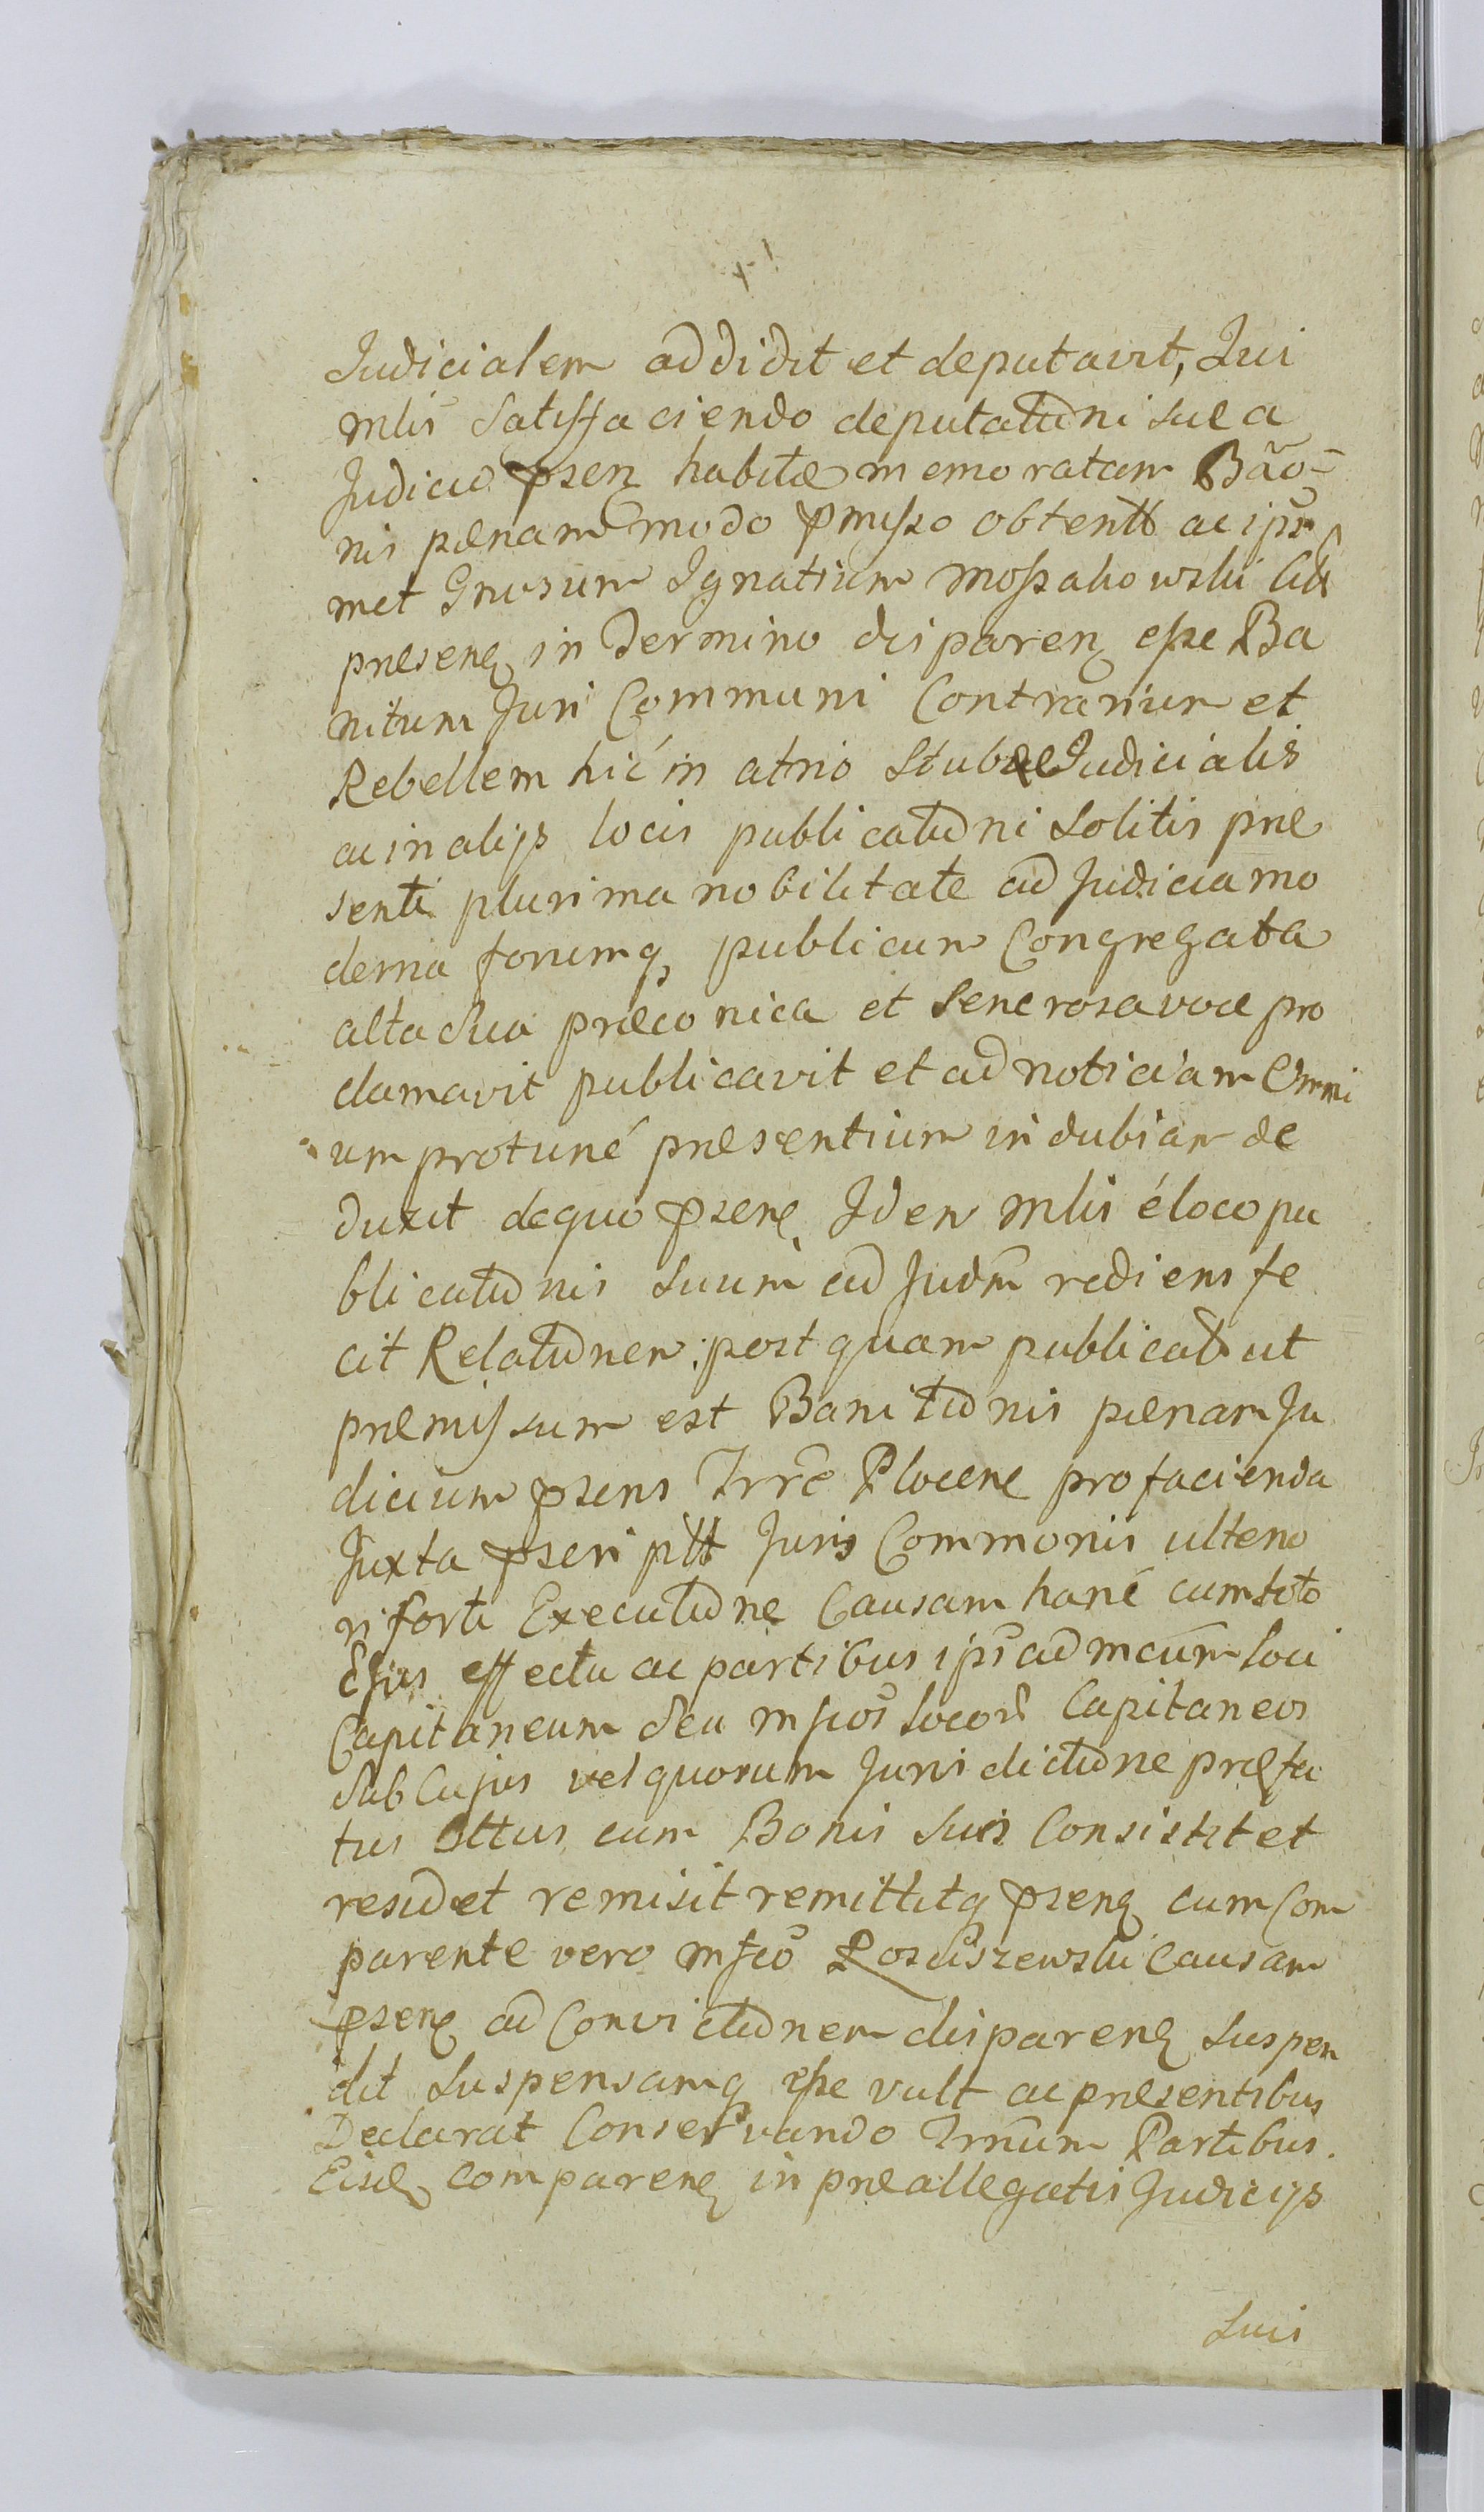 Judicialem addidit et deputavit, Qui
mlis Satisfaciendo deputationi suæ a
Judicio pseñ habitæ memoratam Bão=
nis pænam modo pmisso obtentt ac ips
met Gnosum Ignatium Mossakowski Citt
præseñ in Termino disparen esse Ba
nitum Juri Communi Contrarium et
Rebellem hic in atrio Stubæ Judicialis
ac in alijs locis publicationi Solitis præ
senti plurima nobilitate ad Judicia mo
derna forumq publicum Congregata
alta Sua præconica et Senerosa voce pro
clamavit publicavit et ad noticiam Omni
um protunc præsentium indubiam de
duxit de quo psens Idem mlis é loco pu
blicationis Suum ad Judm rediens fe
cit Relationem: post quam publicat ut
præmissum est Banitionis pænam Ju
dicium psens Trre Plocen pro facienda
Juxta pscriptt Juris Commonis ulterio
ri forti Executione Causam hanc cum toto
Ejus effectu ac partibus ips ad mcum loci
Capitaneum Seu mficos locor Capitaneos
Sub Cujus vel quorum Jurisdictione præfa
tus Cittus cum Bonis Suis Consistit et
residet remisit remittitq psens cum Com
parente vero mfco Rosciszewski Causam
psens ad Convictionem disparen Suspen
dit Suspensamq esse vult ac præsentibus
Declarat Conservando Trnum Partibus.
Eisd comparen in præallegatis Judicijs
Suis